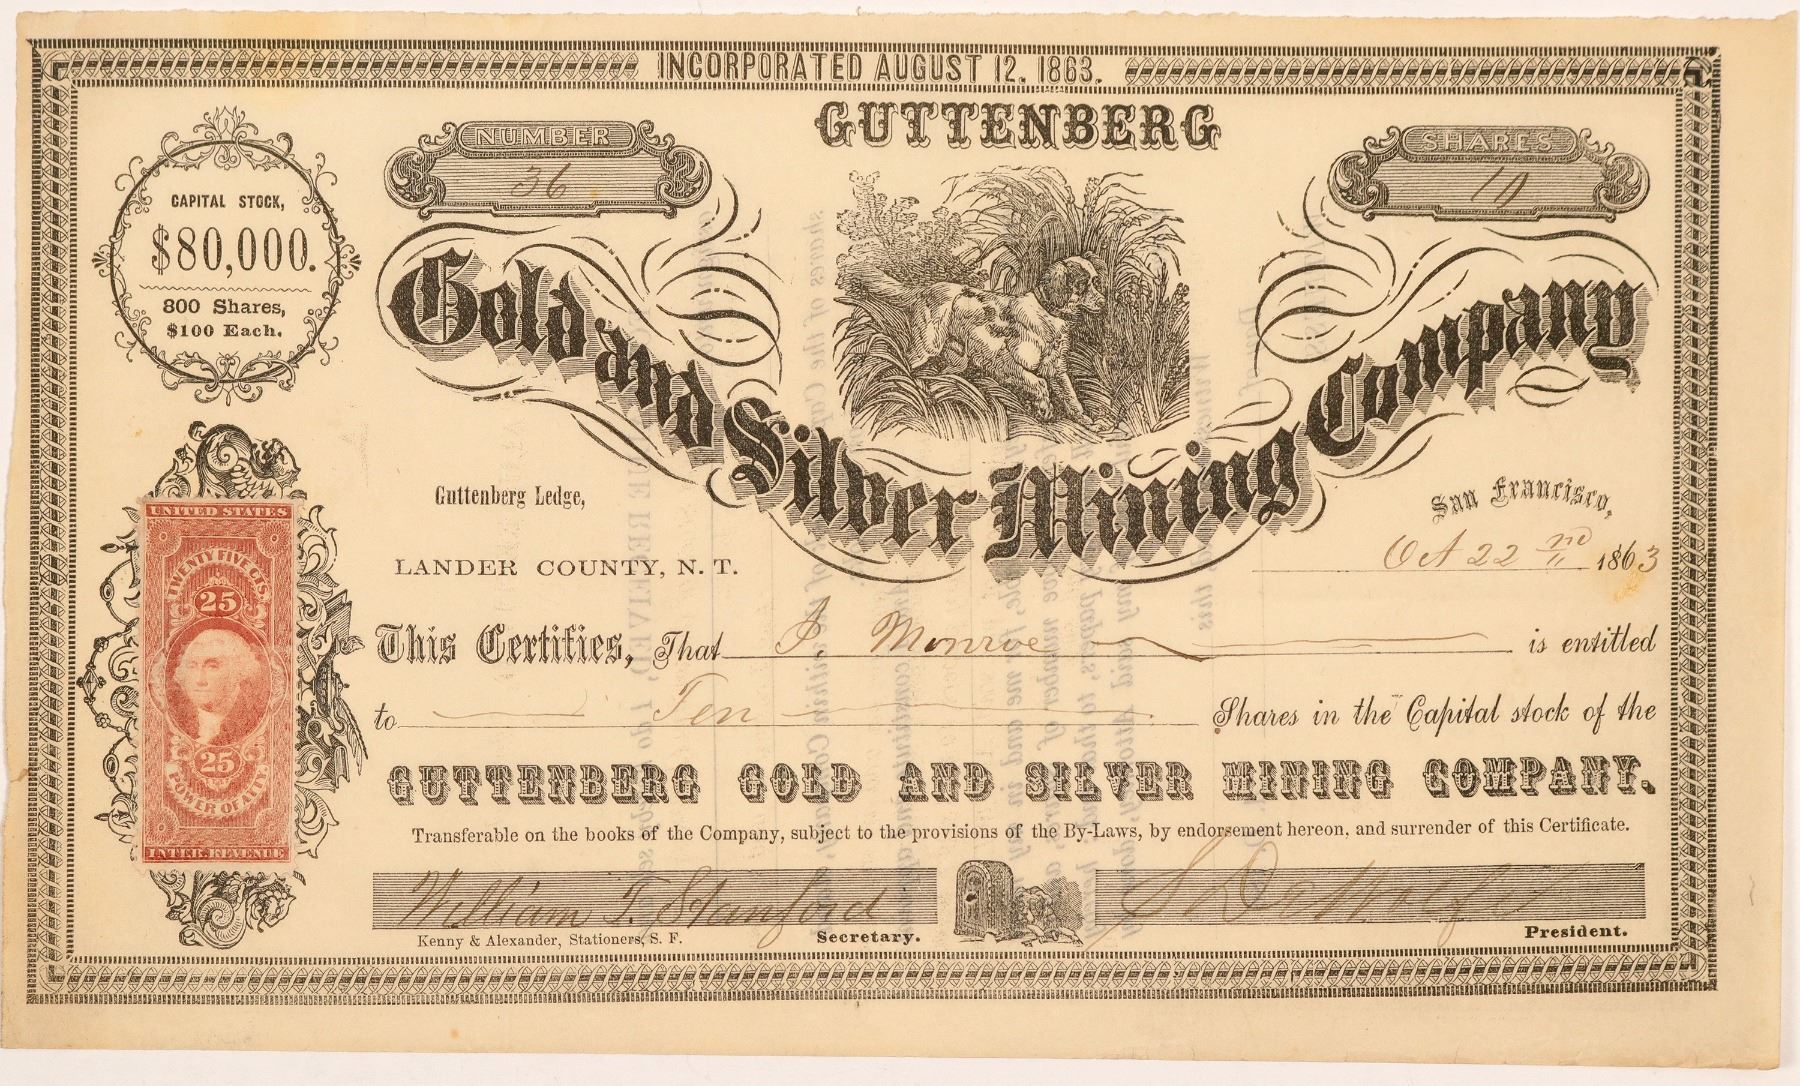 INCORPORATED AUGUST 12, 1863.
GUTTENBERG
NUMBER
36
SHARES
10
CAPITAL STOCK,
$80,000.
800 Shares,
$100 Each.
Gold and Silver Mining Company
Guttenberg Ledge,
LANDER COUNTY, N. T.
San Francisco,
Oct 22nd 1863
UNITED STATES
TWENTY FIVE CTS.
25
25
POWER OF ATT'Y
INTER. REVENUE
This Certifies, That J. Monroe is entitled
to Ten Shares in the Capital stock of the
GUTTENBERG GOLD AND SILVER MINING COMPANY.
Transferable on the books of the Company, subject to the provisions of the By-Laws, by endorsement hereon, and surrender of this Certificate.
William T. Stanford
Kenny & Alexander, Stationers, S. F.
Secretary.
President.